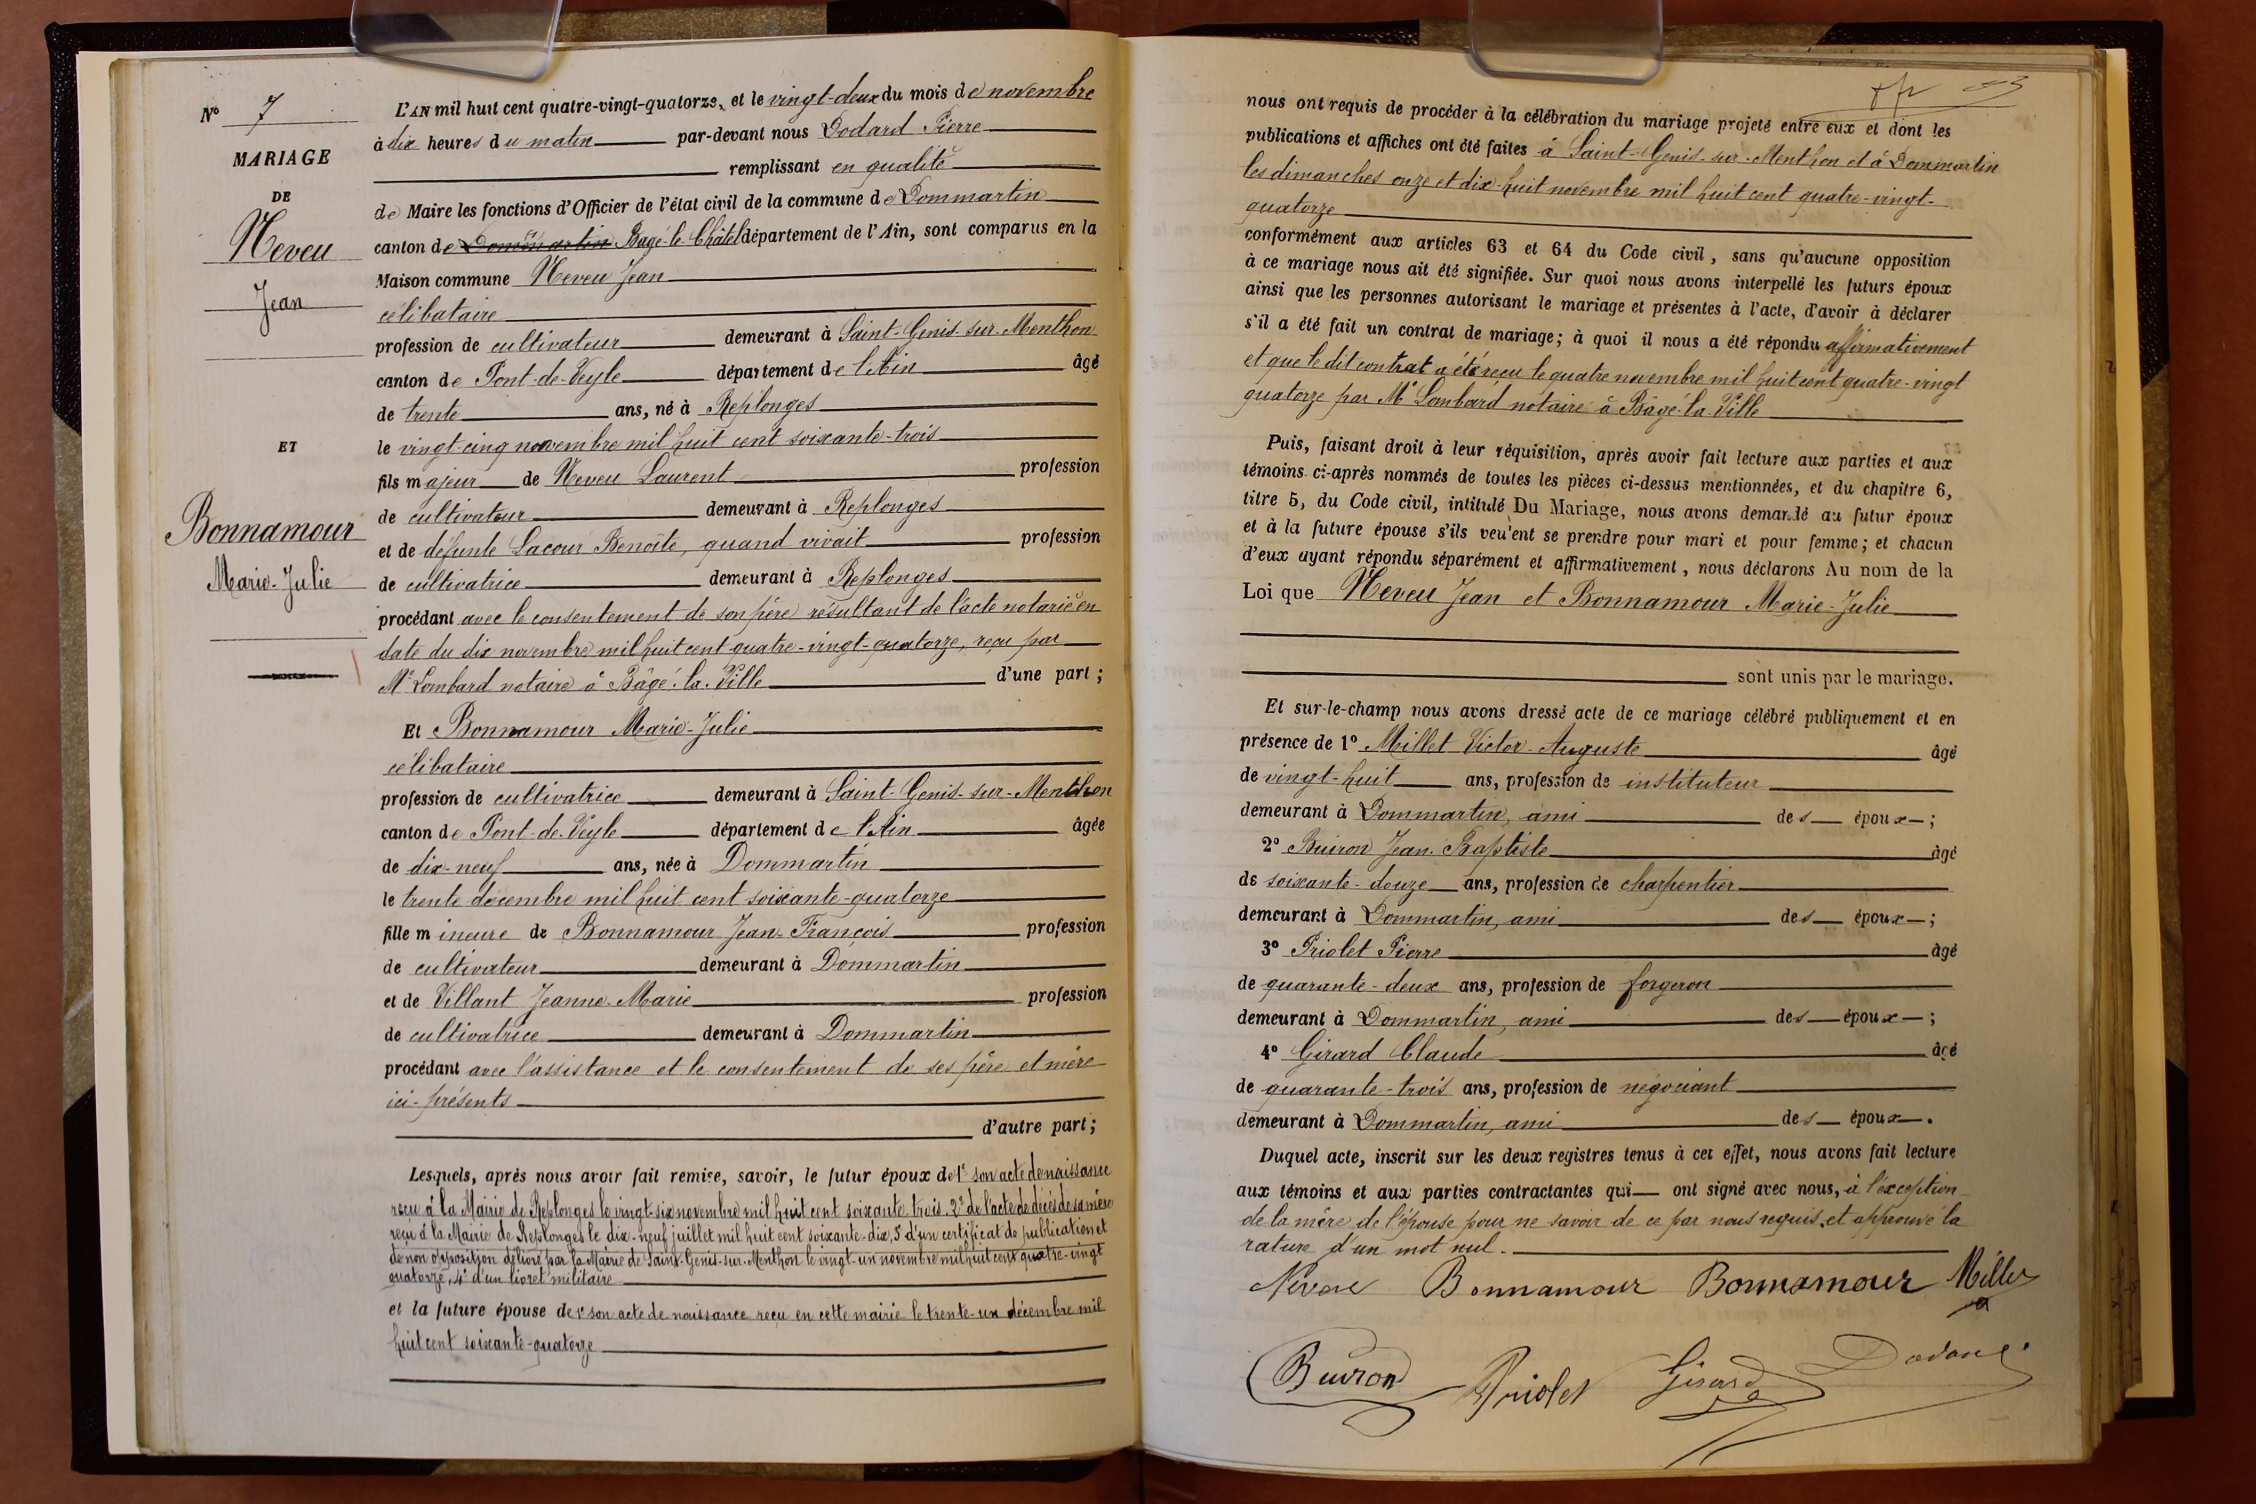 N° 7
MARIAGE
DE
Neveu
Jean
ET
Bonnamour
Marie-Julie
L'AN mil huit cent quatre-vingt-quatorze, et le vingt-deux du mois de novembre
à dix heures du matin par-devant nous Dodard Pierre
remplissant en qualité
de Maire les fonctions d'Officier de l'état civil de la commune de Dommartin
canton de Dommartin Bagé-le-Châtel département de l'Ain, sont comparus en la
Maison commune Neveu Jean
célibataire
profession de cultivateur demeurant à Saint-Genis-sur-Menthon
canton de Pont-de-Veyle département de l'Ain âgé
de trente ans, né à Replonges
le vingt-cinq novembre mil huit cent soixante-trois
fils majeur de Neveu Laurent profession
de cultivateur demeurant à Replonges
et de défunte Lacour Benoîte, quand vivait profession
de cultivatrice demeurant à Replonges
procédant avec le consentement de son père résultant de l'acte notarié en
date du dix novembre mil huit cent quatre-vingt-quatorze, reçu par
Me Lombard notaire à Bâgé-la-Ville d'une part;
Et Bonnamour Marie-Julie
célibataire
profession de cultivatrice demeurant à Saint-Genis-sur-Menthon
canton de Pont-de-Veyle département de l'Ain âgée
de dix-neuf ans, née à Dommartin
le trente décembre mil huit cent soixante-quatorze
fille mineure de Bonnamour Jean-François profession
de cultivateur demeurant à Dommartin
et de Villant Jeanne-Marie profession
de cultivatrice demeurant à Dommartin
procédant avec l'assistance et le consentement de ses père et mère
ici-présents
d'autre part;
Lesquels, après nous avoir fait remise, savoir, le futur époux de 1° son acte de naissance
reçu à la Mairie de Replonges le vingt-six novembre mil huit cent soixante-trois, 2° de l'acte de décès de sa mère
reçu à la Mairie de Replonges le dix-neuf juillet mil huit cent soixante-dix, 3° d'un certificat de publication et
de non opposition délivré par la Mairie de Saint-Genis-sur-Menthon le vingt-un novembre mil huit cent quatre-vingt
quatorze, 4° d'un livret militaire
et la future épouse de 1° son acte de naissance reçu en cette mairie le trente-un décembre mil
huit cent soixante-quatorze
nous ont requis de procéder à la célébration du mariage projeté entre eux et dont les
publications et affiches ont été faites à Saint-Genis-sur-Menthon et à Dommartin
les dimanches onze et dix-huit novembre mil huit cent quatre-vingt-
quatorze
conformément aux articles 63 et 64 du Code civil, sans qu'aucune opposition
à ce mariage nous ait été signifiée. Sur quoi nous avons interpellé les futurs époux
ainsi que les personnes autorisant le mariage et présentes à l'acte, d'avoir à déclarer
s'il a été fait un contrat de mariage; à quoi il nous a été répondu affirmativement
et que le dit contrat a été reçu le quatre novembre mil huit cent quatre-vingt
quatorze par Me Lombard notaire à Bâgé-la-Ville
Puis, faisant droit à leur réquisition, après avoir fait lecture aux parties et aux
témoins ci-après nommés de toutes les pièces ci-dessus mentionnées, et du chapitre 6,
titre 5, du Code civil, intitulé Du Mariage, nous avons demandé au futur époux
et à la future épouse s'ils veulent se prendre pour mari et pour femme; et chacun
d'eux ayant répondu séparément et affirmativement, nous déclarons Au nom de la
Loi que Neveu Jean et Bonnamour Marie-Julie
sont unis par le mariage.
Et sur-le-champ nous avons dressé acte de ce mariage célébré publiquement et en
présence de 1° Millet Victor-Auguste âgé
de vingt-huit ans, profession de instituteur
demeurant à Dommartin, ami des époux;
2° Buiron Jean-Baptiste âgé
de soixante-douze ans, profession de charpentier
demeurant à Dommartin, ami des époux;
3° Priolet Pierre âgé
de quarante-deux ans, profession de forgeron
demeurant à Dommartin, ami des époux;
4° Girard Claude âgé
de quarante-trois ans, profession de négociant
demeurant à Dommartin, ami des époux.
Duquel acte, inscrit sur les deux registres tenus à cet effet, nous avons fait lecture
aux témoins et aux parties contractantes qui ont signé avec nous, à l'exception
de la mère de l'épouse pour ne savoir de ce par nous requis, et approuvé la
rature d'un mot nul.
Neveu Bonnamour Bonnamour Millet
Buiron Priolet Girard Dodard